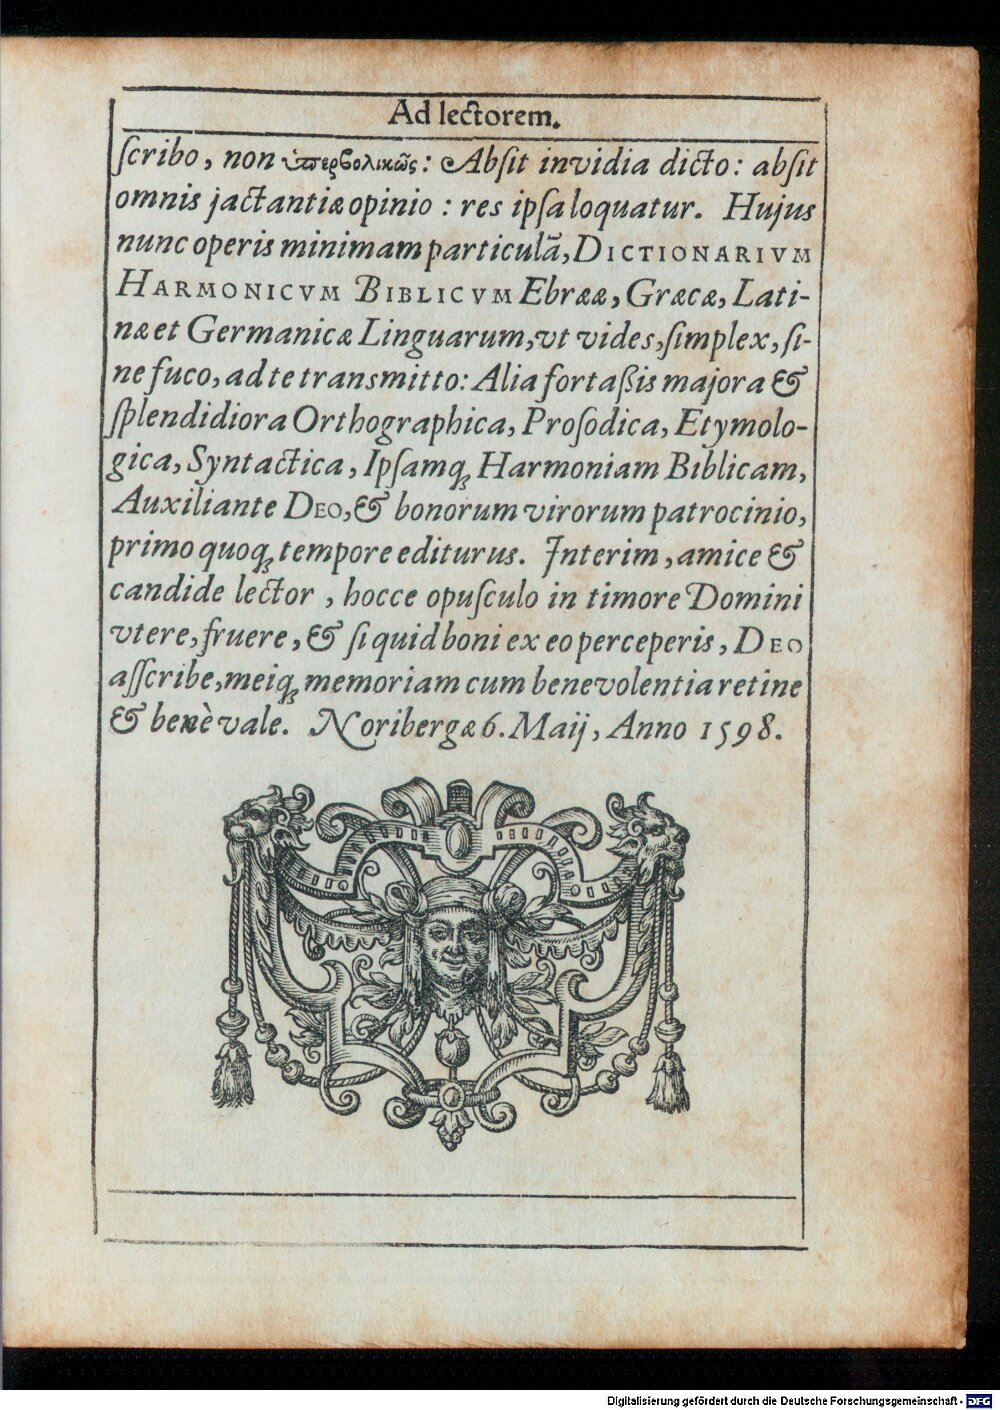 Ad lectorem.
ſcribo, non ὑπερβολικῶς: Abſit invidia dicto: abſit
omnis jactantiæ opinio: res ipſa loquatur. Hujus
nunc operis minimam particulã, DICTIONARIVM
HARMONICVM BIBLICVM Ebrææ, Græcæ, Lati-
næ et Germanicæ Linguarum, vt vides, ſimplex, ſi-
ne fuco, ad te transmitto: Alia fortaßis majora &
ſplendidiora Orthographica, Proſodica, Etymolo-
gica, Syntactica, Ipſamq; Harmoniam Biblicam,
Auxiliante DEO, & bonorum virorum patrocinio,
primo quoq; tempore editurus. Interim, amice &
candide lector, hocce opuſculo in timore Domini
vtere, fruere, & ſi quid boni ex eo perceperis, DEO
aſſcribe, meiq; memoriam cum benevolentia retine
& benè vale. Noribergæ 6. Maij, Anno 1598.
Digitalisierung gefördert durch die Deutsche Forschungsgemeinschaft - DFG